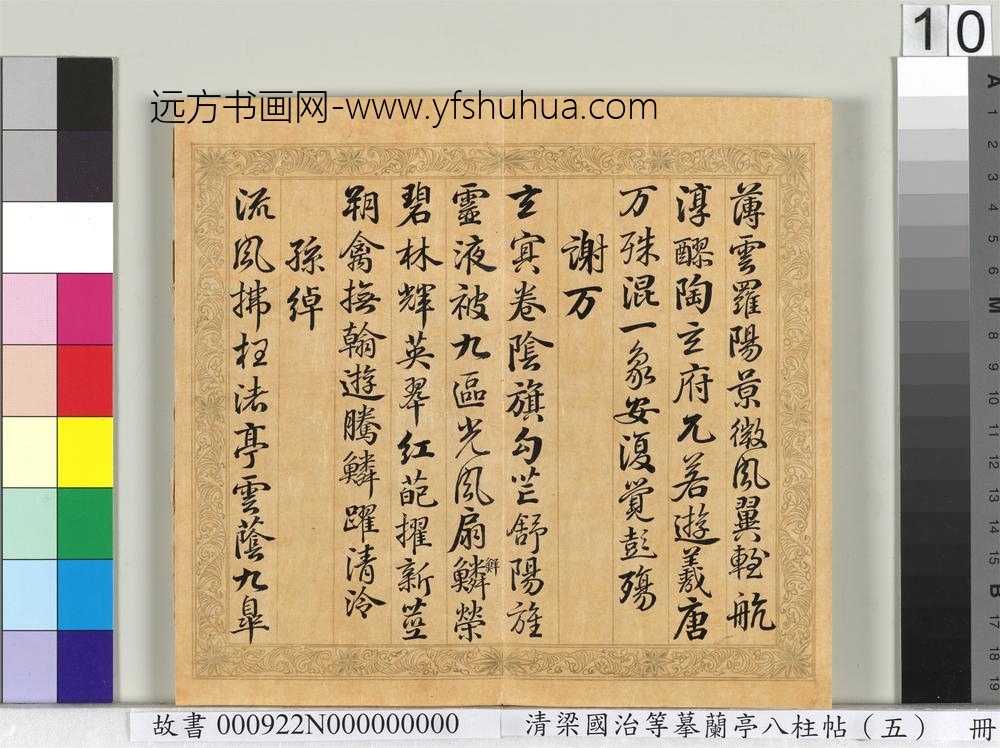 10
远方书画网-www.yfshuhua.com
薄雲羅陽景微風翼軽航
淳醪陶玄府兀若遊羲唐
万殊混一象安復覺彭殤
謝万
玄冥卷陰旗勾芒舒陽旌
靈液被九區光風扇鱗榮
鮮
碧林輝英翠紅葩擢新莖
翔禽撫翰遊騰鱗躍清泠
孫綽
流風拂枉渚亭雲蔭九皐
故書 000922N000000000
清梁國治等摹蘭亭八柱帖（五） 冊
A
1
2
3
4
5
6
M
8
9
10
11
12
13
14
15
B
17
18
19